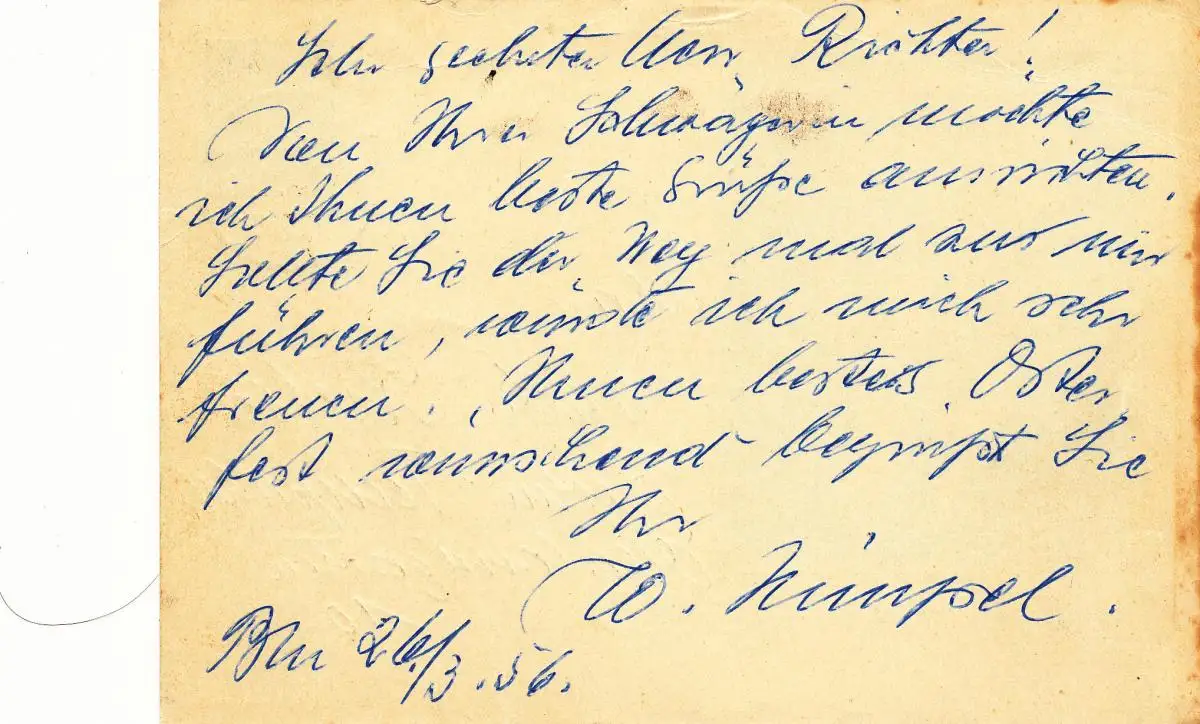 Sehr geehrter Herr Richter!
Von Ihrer Schwägerin möchte
ich Ihnen beste Grüße ausrichten.
Sollte Sie der Weg mal zu mir
führen, würde ich mich sehr
freuen. Ihnen bestes Oster
fest wünschend begrüßt Sie
Ihr
W.
Bln 26/3.56.